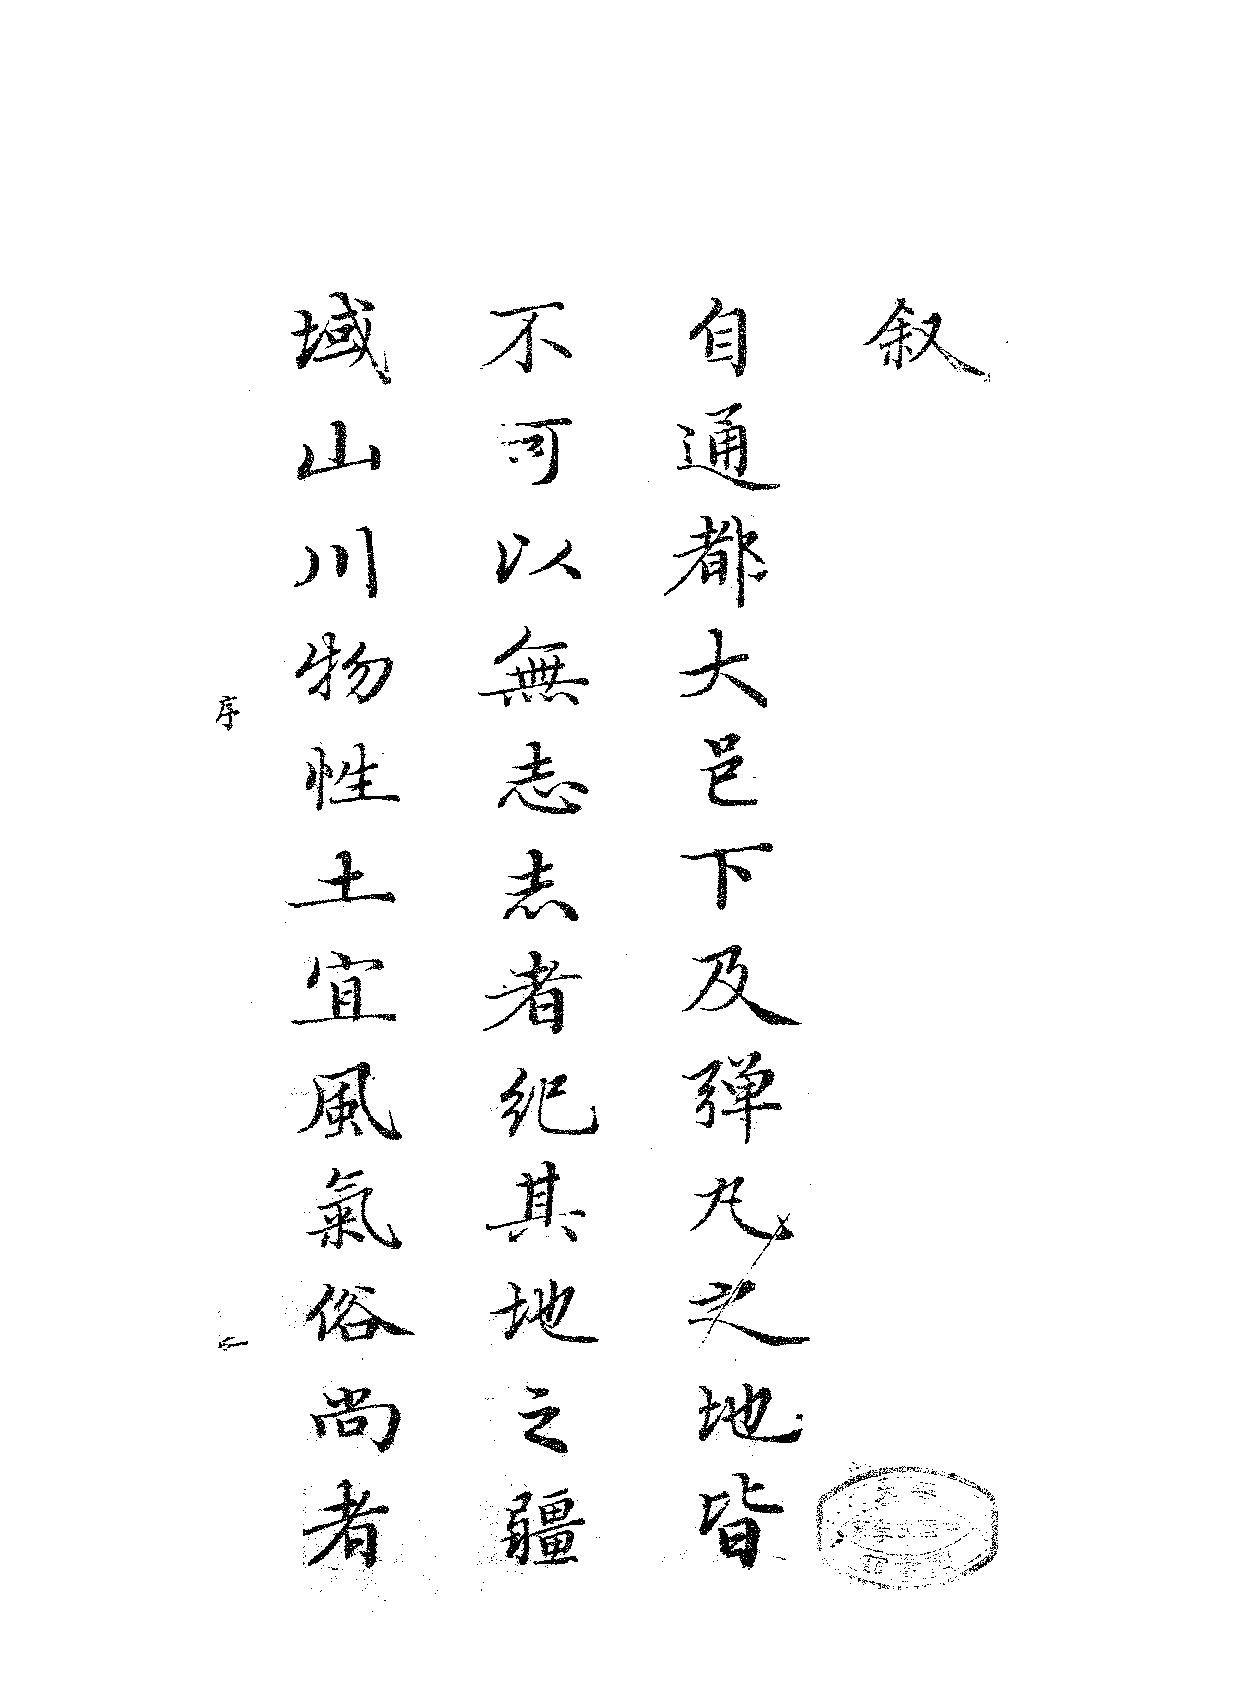 叙
自通都大邑下及弹丸之地皆
不可以無志志者紀其地之疆
域山川物性土宜風氣俗尚者
序
一